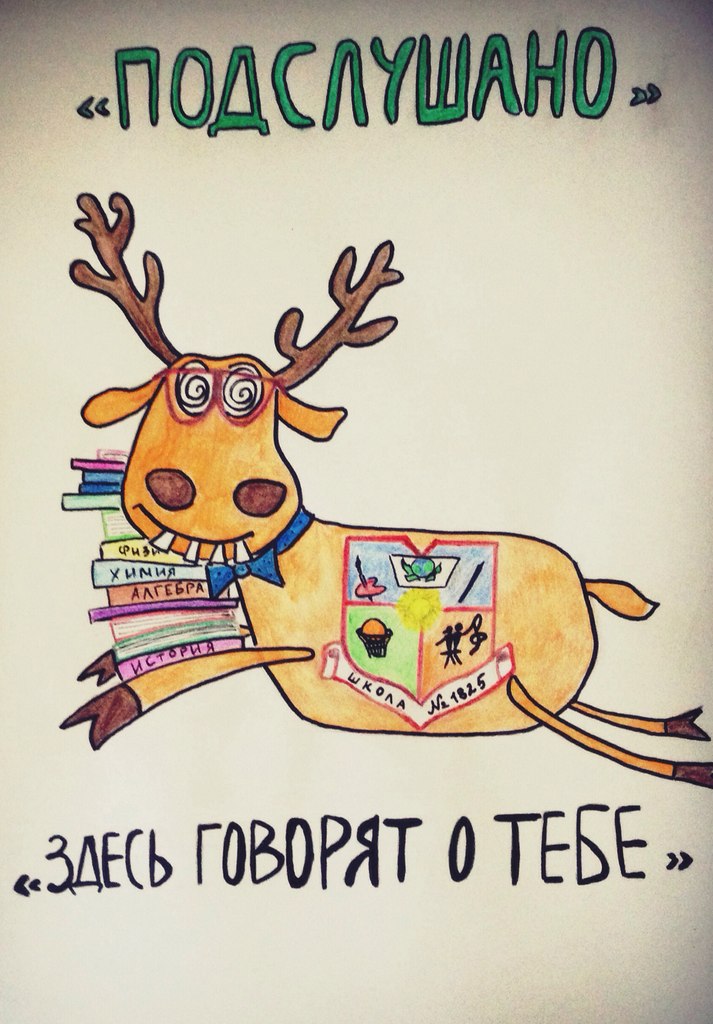 «ПОДСЛУШАНО»
ФИЗИ
ХИМИЯ
АЛГЕБРА
ИСТОРИЯ
ШКОЛА №1825
«ЗДЕСЬ ГОВОРЯТ О ТЕБЕ»